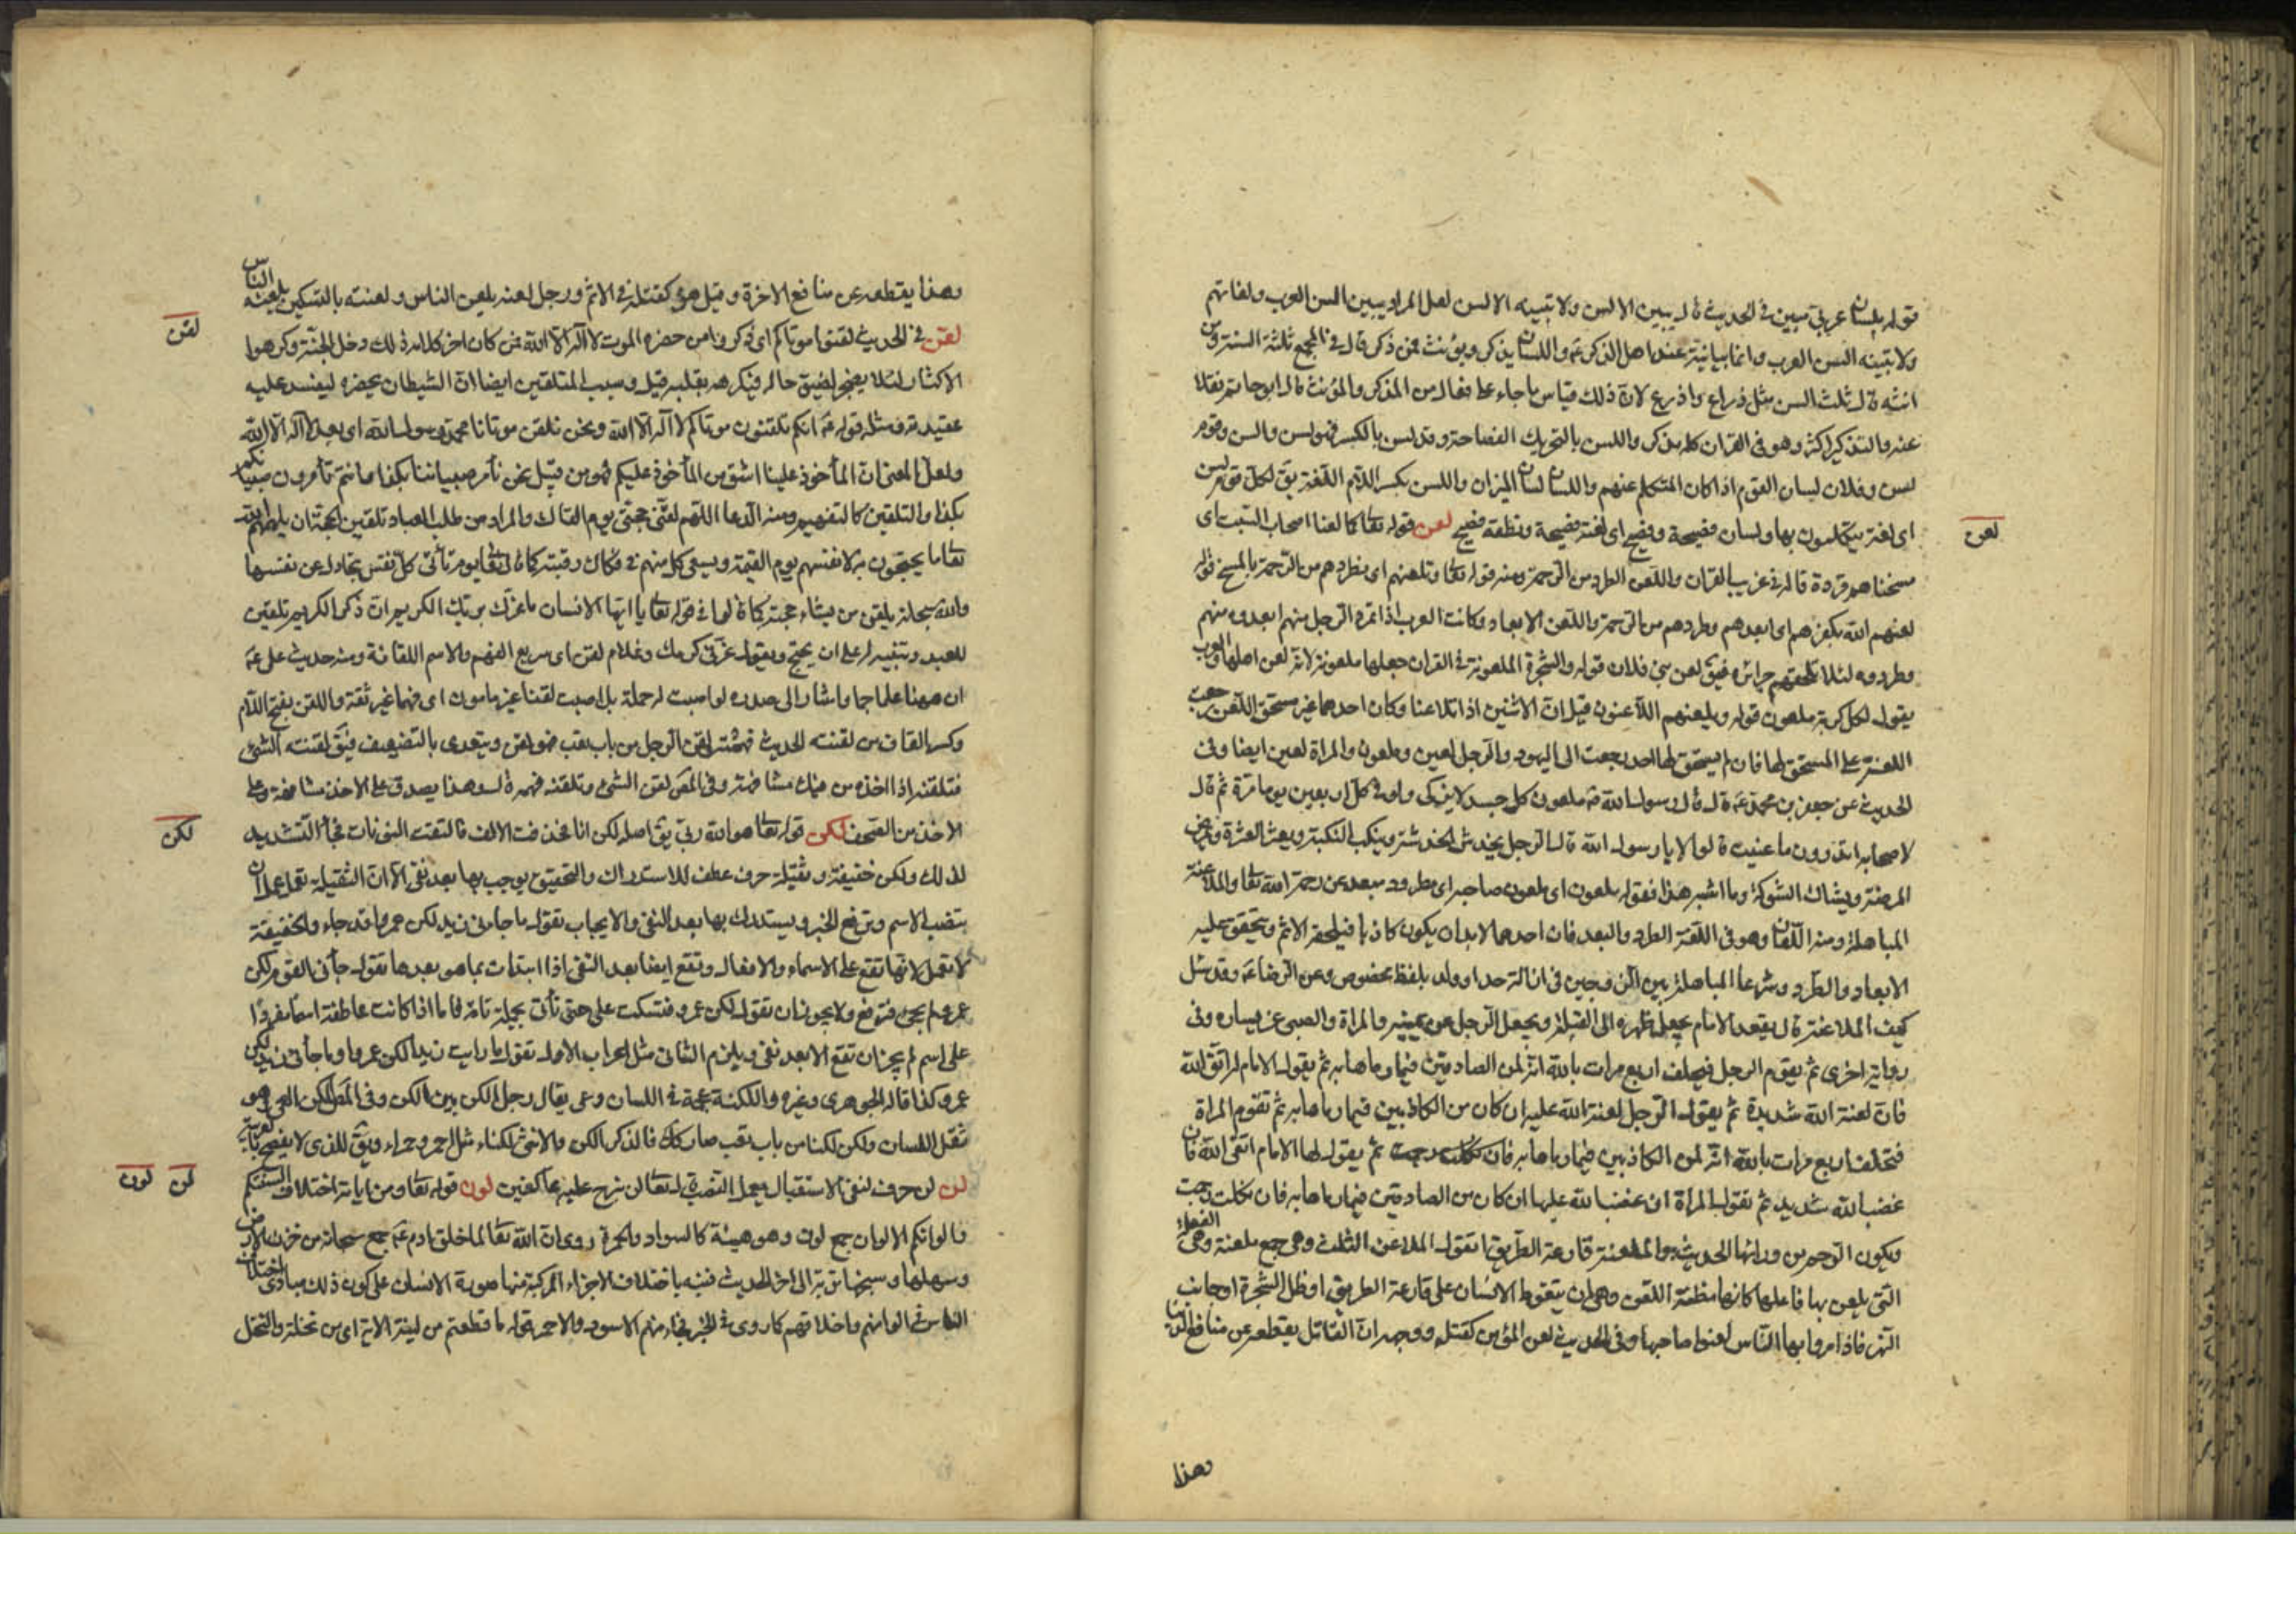 قوله بلسان عربي مبين في الحديث قال يبين الالسن ولا تبينه الالسن لعل المراد يبين السن العرب ولغاتهم
ولا تبينه السن العرب واللسان يذكر ويؤنث فمن ذكر قال في الجمع ثلثة السنة ومن
انثه قال ثلث السن مثل ذراع واذرع لان ذلك قياس ما جاء على فعال من المذكر والمؤنث قال ابو حاتم نقلا
عنه والتذكير اكثر وهو في القران كله مذكر واللسن بالتحريك الفصاحة وقد لسن بالكسر فهو لسن والسن وقوم
لسن وفلان لسان القوم اذا كان المتكلم عنهم واللسان لسان الميزان واللسن بكسر اللام اللغة يق لكل قوم لسن
لعن
اى لغة يتكلمون بها ولسان فصيحة وفصيح اى لغة فصيحة ونطقه فصيح لعن قوله تعا كما لعنا اصحاب السبت اى
مسخناهم قردة قاله في غريب القران واللعن الطرد من الرحمة ومنه قوله تعا ونلعنهم اى نطردهم من الرحمة بالمسخ قوله
لعنهم الله بكفرهم اى ابعدهم وطردهم من الرحمة واللعن الابعاد وكانت العرب اذا تمرد الرجل منهم ابعدوه منهم
وطردوه لئلا تلحقهم جرائره فيق لعن بني فلان قوله والشجرة الملعونة في القران جعلها ملعونة لانه لعن اهلها والعرب
يقول لكل كريه ملعون قوله ويلعنهم اللاعنون قيل ان الاثنين اذا تلاعنا وكان احدهما غير مستحق اللعن رجعت
اللعنة على المستحق لها فان لم يستحق لها احد رجعت الى اليهود والرجل لعين وملعون والمراة لعين ايضا وفى
الحديث عن جعفر بن محمد عه قال قال رسول الله ص ملعون كل جسد لا يزكى ولو في كل اربعين يوما مرة ثم قال
لاصحابه اتدرون ما عنيت قالوا لا يا رسول الله قال الرجل يخدش الخدشة وينكب النكبة ويعثر العثرة ويمرض
المرضة ويشاك الشوكة وما اشبه هذا فقوله ملعون اى ملعون صاحبه اى مطرود مبعد عن رحمة الله تعا والملاعنة
المباهلة ومنه اللعان وهو في اللغة الطرد والبعد فان احدهما لابد ان يكون كاذبا فيلحقه الاثم ويتحقق عليه
الابعاد والطرد وشرعا المباهلة بين الزوجين في ازالة حد او ولد بلفظ مخصوص وعن الرضا عه وقد سئل
كيف الملاعنة قال يقعد الامام يجعل ظهره الى القبلة ويجعل الرجل عن يمينه والمراة والصبى عن يساره وفى
رواية اخرى ثم يقوم الرجل فيحلف اربع مرات بالله انه لمن الصادقين فيما رماها به ثم يقول الامام له اتق الله
فان لعنة الله شديدة ثم يقول الرجل لعنة الله عليه ان كان من الكاذبين فيما رماها به ثم تقوم المراة
فتحلف اربع مرات بالله انه لمن الكاذبين فيما رماها به فان نكلت رجمت ثم يقول لها الامام اتقى الله فان
غضب الله شديد ثم تقول المراة ان غضب الله عليها ان كان من الصادقين فيما رماها به فان نكلت رجمت
ويكون الرجم من ورائها الحديث والملعنة قارعة الطريق اتقوا الملاعن الثلث وهي جمع ملعنة وهى الفعلة
التى يلعن بها فاعلها كانها مظنة اللعن وهى ان يتغوط الانسان على قارعة الطريق او ظل الشجرة او جانب
النهر فاذا مروا بها الناس لعنوا صاحبها وفى الحديث لعن المؤمن كقتله ووجهه ان القاتل يقطعه عن منافع الدنيا
وهذا
وهذا يقطعه عن منافع الاخرة وقيل هو كقتله في الاثم ورجل لعنه يلعن الناس ولعنته بالتسكين يلعنه الناس
لقن
لقن في الحديث لقنوا موتاكم اى ذكروا من حضره الموت لا اله الا الله فمن كان اخر كلامه ذلك دخل الجنة وكرهوا
الاكثار لئلا يضجر لضيق حاله فيكرهه بقلبه قيل وسبب التلقين ايضا ان الشيطان يحضره ليفسد عليه
عقيدته ومثله قوله عه انكم تلقنون موتاكم لا اله الا الله ونحن نلقن موتانا محمد رسول الله اى بعد لا اله الا الله
ولعل المعنى ان المأخوذ علينا اشق من المأخوذ عليكم فهو من قبيل نحن نأمر صبياننا بكذا وانتم تأمرون صبيانكم
بكذا والتلقين كالتفهيم ومنه الدعا اللهم لقنى حجتى يوم القاك والمراد من طلب العباد تلقين الحجة ان يلهمهم الله
تعا ما يحتجون به لانفسهم يوم القيمة ويسعى كل منهم في فكاك رقبته كما قال تعا يوم تأتى كل نفس تجادل عن نفسها
والله سبحانه يلقن من يشاء حجته كما قالوا في قوله تعا يا ايها الانسان ما غرك بربك الكريم ان ذكر الكريم تلقين
للعبد وتنبيه له على ان يحتج ويقول غرنى كرمك وغلام لقن اى سريع الفهم والاسم اللقانة ومنه حديث على عه
ان ههنا علما جما واشار الى صدره لو اصبت له حملة بلى اصبت لقنا غير مامون اى فهما غير ثقة واللقن بفتح اللام
وكسر القاف من لقنته الحديث فهمته لقن الرجل من باب تعب فهو لقن ويتعدى بالتضعيف فيق لقنته الشئ
فتلقنه اذا اخذه من فيك مشافهة وفى المص لقن الشئ وتلقنه فهمه قال وهذا يصدق على الاخذ مشافهة وعلى
لكن
الاخذ من المصحف لكن قوله تعا لكنا هو الله ربى يق اصله لكن انا فحذفت الالف فالتقت النونان فجاء التشديد
لذلك ولكن خفيفة وثقيلة حرف عطف للاستدراك والتحقيق يوجب بها بعد نفى الا ان الثقيلة تعمل عمل ان
تنصب الاسم وترفع الخبر ويستدرك بها بعد النفى والايجاب تقول ما جاءنى زيد لكن عمروا قد جاء والخفيفة
لا تعمل لانها تقع على الاسماء والافعال وتقع ايضا بعد النفى اذا ابتدات بما هو بعدها تقول جأنى القوم لكن
عمرو لم يجئ فترفع ولا يجوز ان تقول لكن عمرو فتسكت على حتى تأتى بجملة تامة فاما اذا كانت عاطفة اسما مفردا
على اسم لم يجز ان تقع الا بعد نفى ويلزم الثانى مثل اعراب الاول تقول ما رايت زيدا لكن عمروا وما جأنى زيد لكن
عمرو كذا قاله الجوهرى وغيره واللكنة عجمة في اللسان وعى يقال رجل الكن بين اللكن وفى المص اللكن العى وهو
ثقل اللسان ولكن لكنا من باب تعب صار كذلك فالذكر الكن والانثى لكناء مثل احمر وحمراء ويق للذى لا يفصح بالعربية
لن لون
لن لن حرف لنفى الاستقبال يعمل النصب قال تعا لن نبرح عليه عاكفين لون قوله تعا ومن اياته اختلاف السنتكم
والوانكم الالوان جمع لون وهو هيئة كالسواد والحمرة روى ان الله تعا لما خلق ادم عه جمع سبحانه من حزن الارض
وسهلها وسبخها تربة الى اخر الحديث فنبه باختلاف الاجزاء المركبة منها صورة الانسان على كون ذلك مبادى اختلاف
الناس في الوانهم واخلاقهم كما روى في الخبر فجاء منهم الاسود والاحمر قوله ما قطعتم من لينة الاية اى من نخلة والنخل